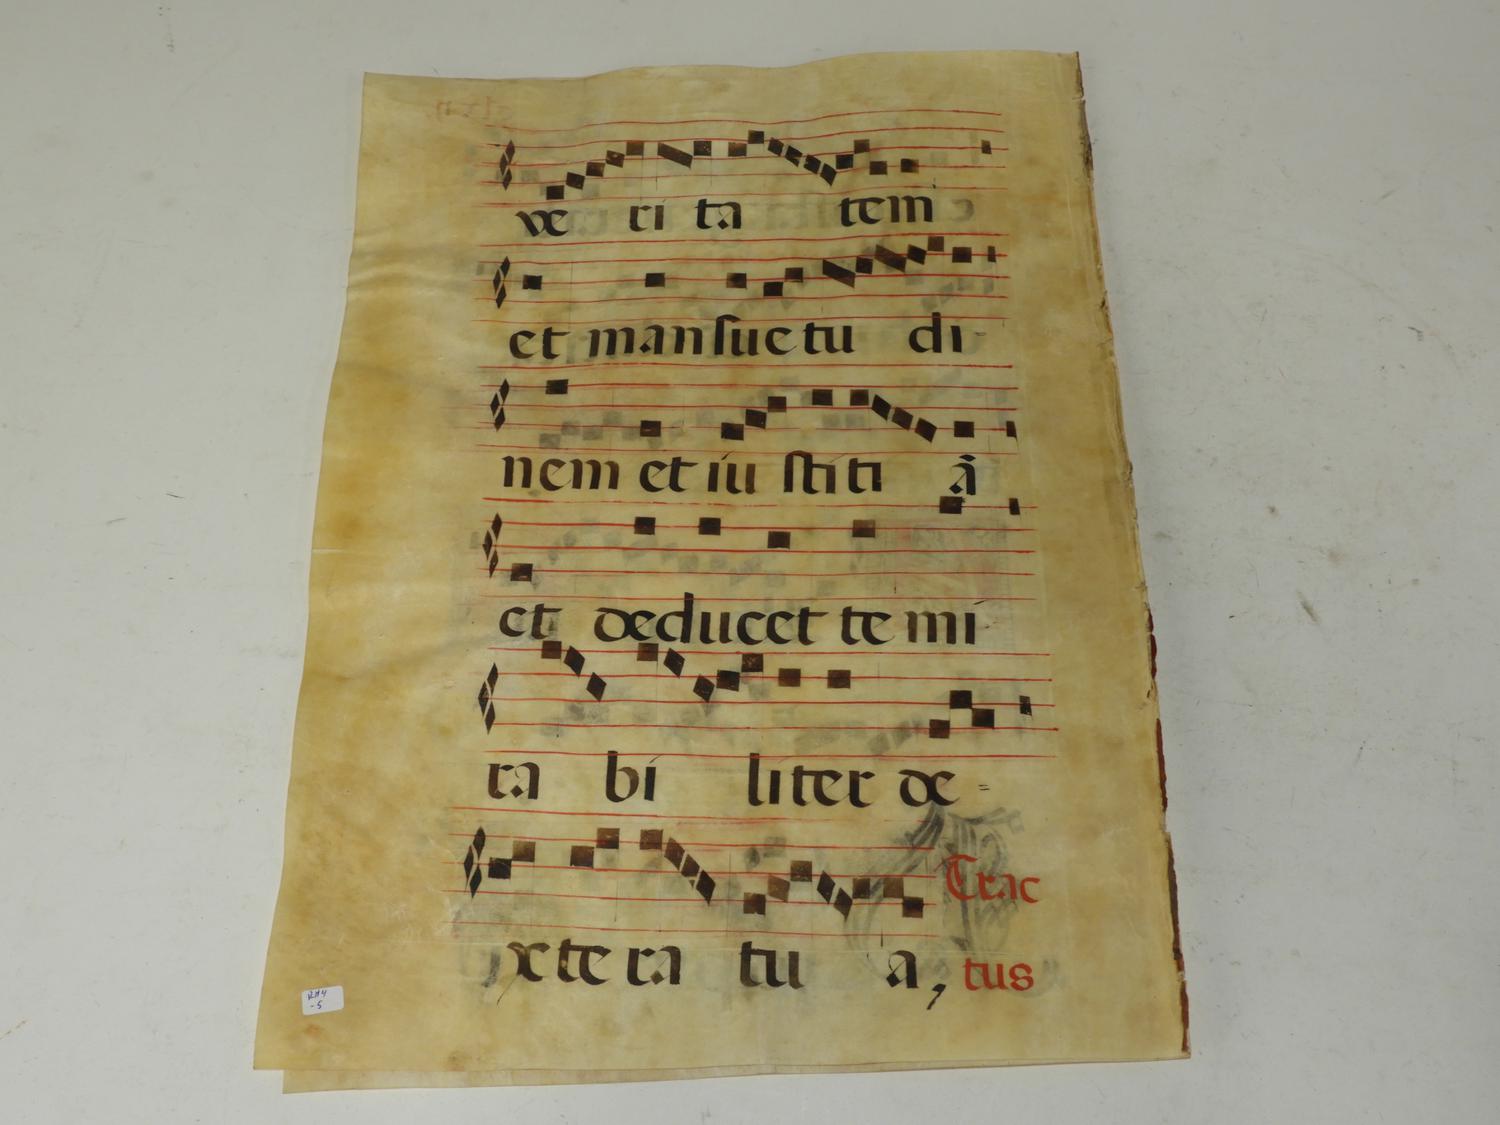 ve ri ta tem
et mansuetu di-
nem et iu stiti ã
et deducet te mi
ra bi liter de=
Trac
xte ra tu a, tus
RH4
-5